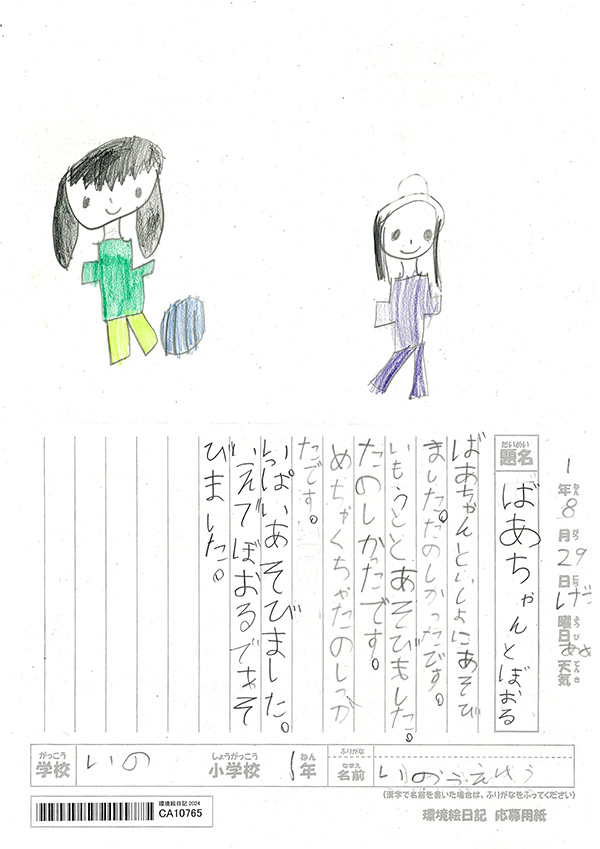 1年8月29日げつ曜日あめ天気
ねん がつ にち ようび てんき
だいめい
題名 ばあちゃんとぼおる
ばあちゃんといしょにあそび
ました。たのしかったです。
いもうととあそびました。
たのしかったです。
めちゃくちゃたのしっか
たです。
いっぱいあそびました。
いえでぼおるであそ
びました。
がっこう しょうがっこう ねん ふりがな
学校 いの 小学校 1年 なまえ 名前 いのうえゆう
(漢字で名前を書いた場合は、ふりがなをふってください)
環境絵日記 2024
CA10765
環境絵日記 応募用紙